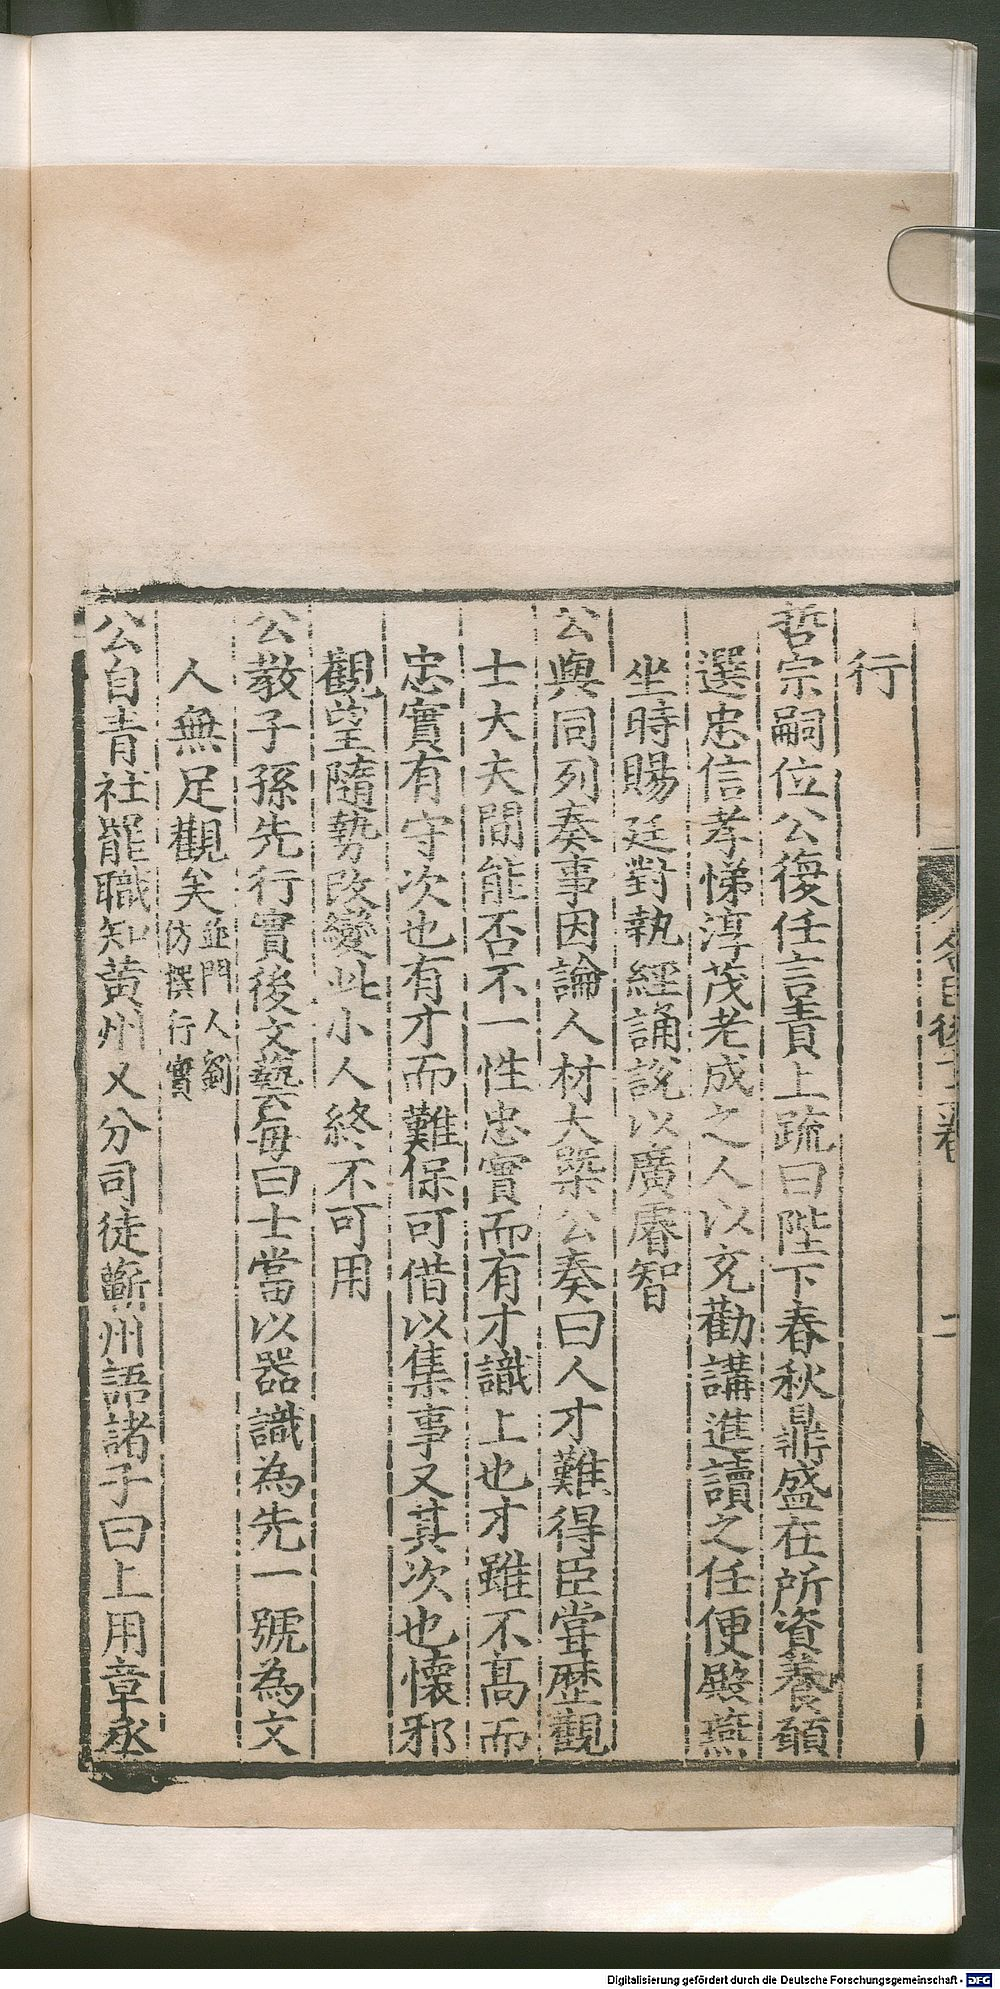 行
哲宗嗣位公復任言責上疏曰陛下春秋鼎盛在所資養頤
選忠信孝悌淳茂老成之人以充勸講進讀之任便殿燕
坐時賜廷對執經誦說以廣睿智
公與同列奏事因論人材大槩公奏曰人才難得臣甞歷觀
士大夫間能否不一性忠實而有才識上也才雖不高而
忠實有守次也有才而難保可借以集事又其次也懷邪
觀望隨勢改變此小人終不可用
公敎子孫先行實後文藝每曰士當以器識為先一號為文
人無足觀矣並門人劉
仿撰行實
公自青社罷職知黄州又分司徒蘄州語諸子曰上用章丞
名臣後十二卷
二
Digitalisierung gefördert durch die Deutsche Forschungsgemeinschaft - DFG